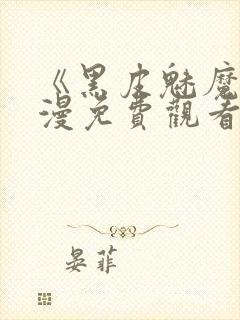 《黑皮魅魔
漫免費觀看
晏菲